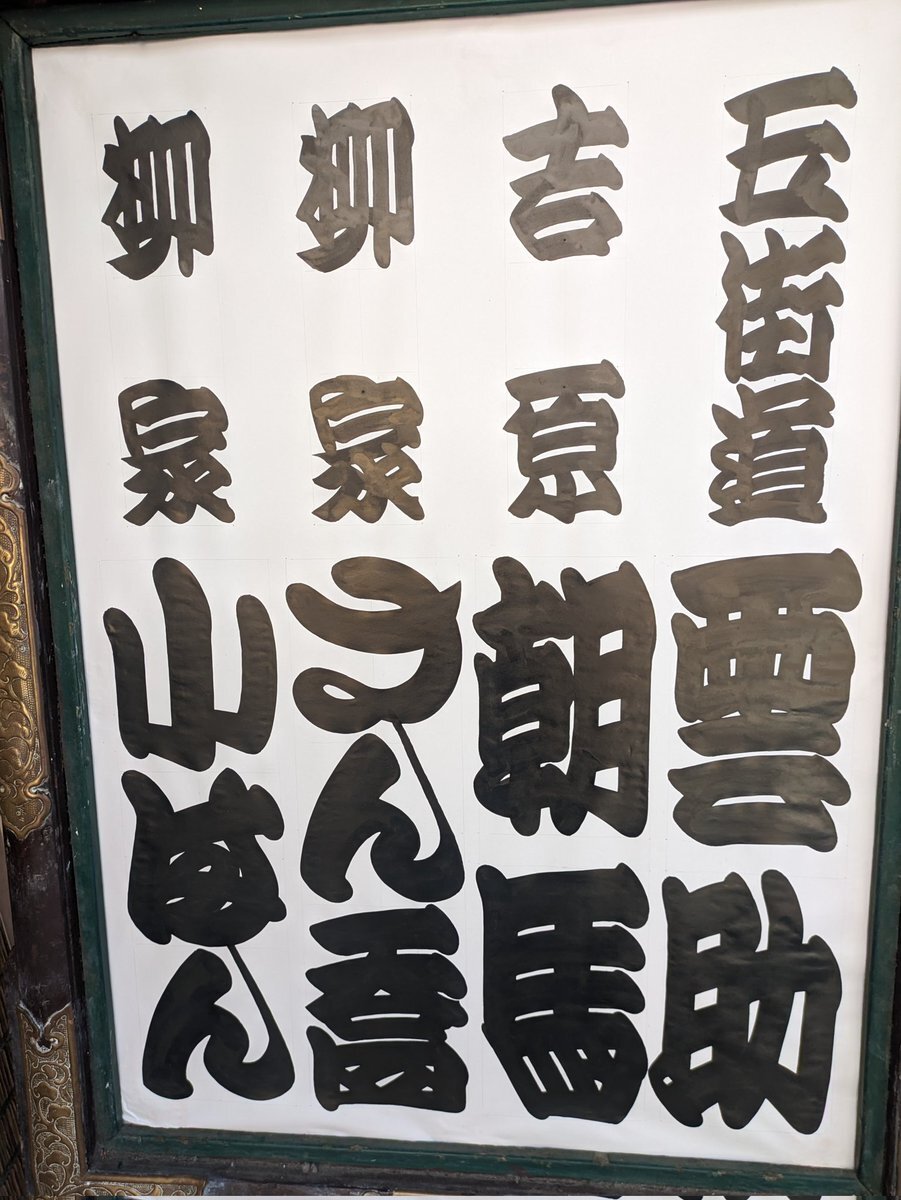 五街道雲助
吉原朝馬
柳家さん喬
柳家小満ん